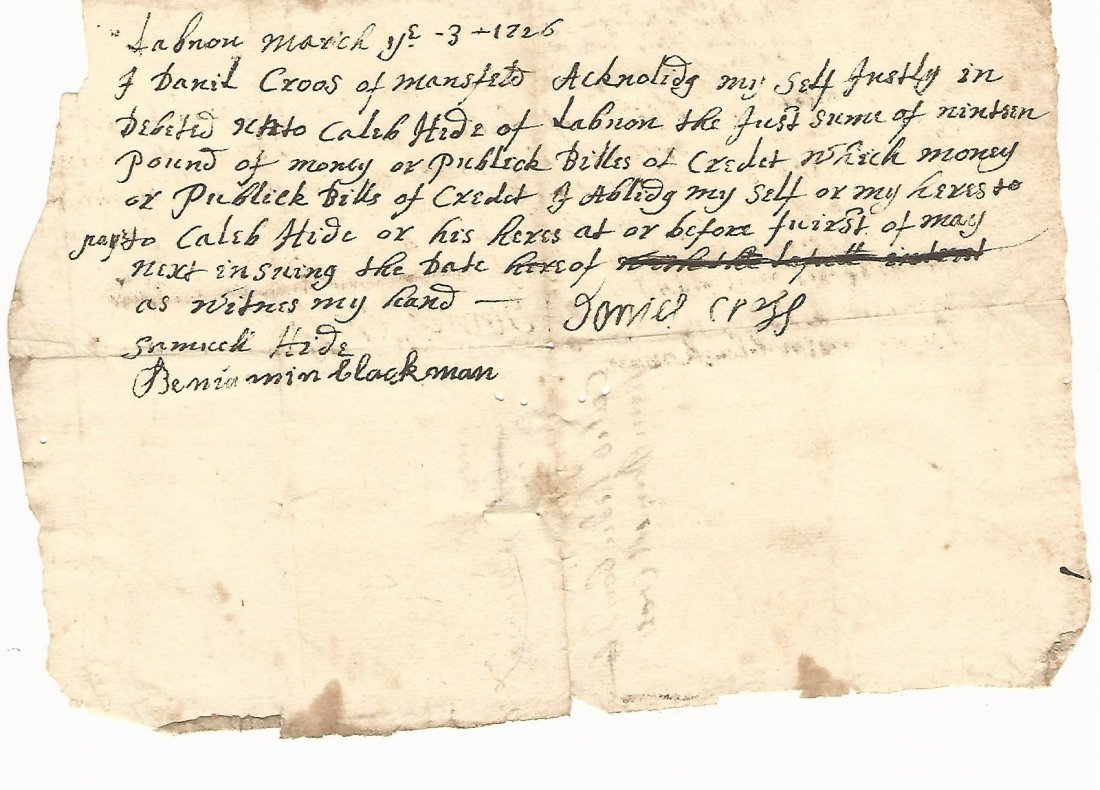 Labnon march ye - 3 - 1726
I Danil Croos of mansfeld Acknolidg my self Justly in
Debeted unto Caleb Hide of Labnon the Just sume of ninteen
Pound of money or Publeck Billes of Credet which money
or Publick Bills of Credet I Ablidg my self or my heres to
pay to Caleb Hide or his heres at or before fuirst of may
next insuing the Date hereof
as witnes my hand — Daniel Cross
Samuell Hide
Beniamin blackman